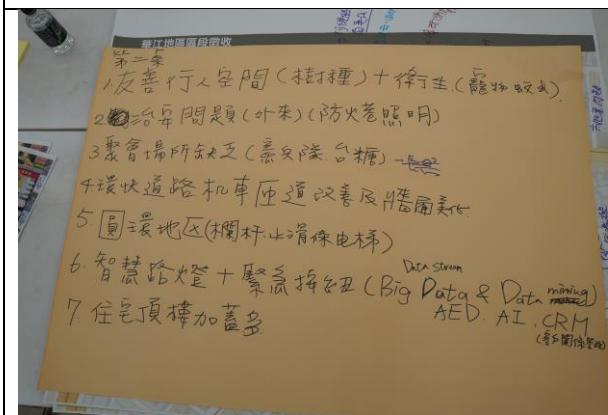 華江地區區段徵收
第二桌
1.友善行人空間(樹種)+衛生.(寵物蚊式)
2治安問題(外來)(防火巷照明)
3.聚會場所缺乏(憲兵隊.台糖)
4.環快道路机車匝道改善及牆面美化.
5.員環地区(欄杆.止滑條电梯)
6.智慧路燈+緊急按鈕(Big Data & Data mining)
Data stream
AED. AI. CRM
(客戶關係管理)
7.住宅頂樓加蓋多